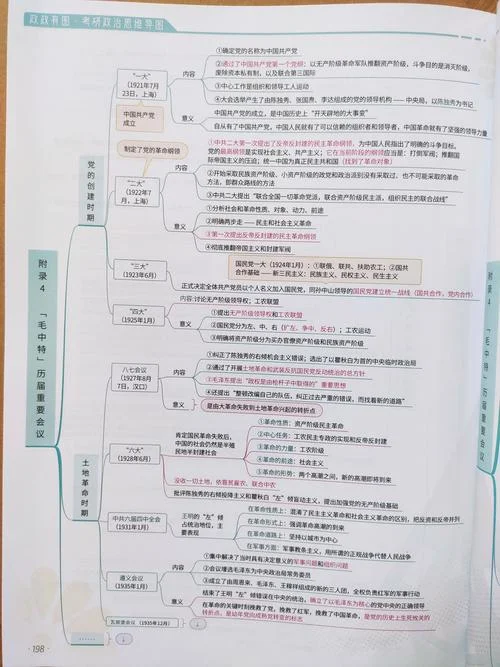 政政有图·考研政治思维导图
附录4 「毛中特」历届重要会议
党的创建时期
“一大”
(1921年7月
23日,上海)
中国共产党
成立
内容
①确定党的名称为中国共产党
②通过了中国共产党第一个党纲:以无产阶级革命军队推翻资产阶级,斗争目的是消灭阶级,
废除资本私有制,以及联合第三国际
③中心工作是组织和领导工人运动
④大会选举产生了由陈独秀、张国焘、李达组成的党的领导机构——中央局,以陈独秀为书记
意义
中国共产党的成立,是中国历史上“开天辟地的大事变”
自从有了中国共产党,中国人民就有了可以依赖的组织者和领导者,中国革命就有了坚强的领导力量
制定了党的革命纲领
“二大”
(1922年7
月,上海)
内容
①中共二大第一次提出了反帝反封建的民主革命纲领,为中国人民指出了明确的斗争目标。
党的最高纲领是实现社会主义、共产主义;它在当前阶段的纲领应当是:打倒军阀;推翻国
际帝国主义的压迫;统一中国为真正民主共和国(找到了革命对象)
②开始采取民族资产阶级、小资产阶级的政党和政治派别没有采取过、也不可能采取的革命
方法,即群众路线的方法
③中共二大提出“联合全国一切革命党派,联合资产阶级民主派,组织民主的联合战线”
意义
①分析社会和革命性质、对象、动力、前途
②明确两步走——民主和社会主义革命
③第一次提出反帝反封建的民主革命纲领
④彻底推翻帝国主义和封建军阀
“三大”
(1923年6月)
国民党一大(1924年1月):①联俄、联共、扶助农工;②国共
合作基础——新三民主义:民族主义、民权主义、民生主义
正式决定全体共产党员以个人名义加入国民党,同孙中山领导的国民党建立统一战线(国共合作,党内合作)
“四大”
(1925年1月)
内容:讨论无产阶级领导权;工农联盟
意义
①提出无产阶级领导权和工农联盟
②国民党分为左、中、右(扩左、争中、反右);工农运动
③明确将资产阶级分为买办官僚资产阶级和民族资产阶级
土地革命时期
八七会议
(1927年8月
7日,汉口)
内容
①纠正了陈独秀的右倾机会主义错误;选出了以瞿秋白为首的中央临时政治局
②通过了开展土地革命和武装反抗国民党反动统治的总方针
③毛泽东提出“政权是由枪杆子中取得的”重要思想
④还提出“整顿改编自己的队伍,纠正过去严重的错误,而找着新的道路”
意义
是由大革命失败到土地革命兴起的转折点
“六大”
(1928年6月)
肯定国民革命失败后,
中国的社会仍然是半殖
民地半封建社会
①革命性质:资产阶级民主革命
②中心任务:工农民主专政的实现和反帝反封建
③革命的力量:工农阶级
④革命的前途:社会主义
⑤革命的形势:两个高潮之间,新的高潮即将到来
没收一切土地,依靠贫雇农、联合中农
批评陈独秀的右倾投降主义和瞿秋白“左”倾盲动主义,提出加强党的无产阶级基础
中共六届四中全会
(1931年1月)
王明的“左”倾
占统治地位,主
要表现
在革命性质上:混淆了民主主义革命和社会主义革命的区别,把反资和反帝并列
在革命形式上:强调革命高潮的到来
在革命道路上:坚持以城市为中心
在军事方面:军事教条主义,用所谓的正规战争代替人民战争
遵义会议
(1935年)
内容
①集中解决了当时具有决定意义的军事问题和组织问题
②会议增选毛泽东为中央政治局常务委员
③成立了由周恩来、毛泽东、王稼祥组成的新的三人团,全权负责红军的军事行动
意义
结束了王明“左”倾错误在中央的统治,确立了以毛泽东为核心的党中央的正确领导
在革命的关键时刻挽救了党,挽救了红军,挽救了中国革命,是党的历史上生死攸关的
转折点,是幼年党向成熟党转变的标志
瓦窑堡会议(1935年12月)
……
·198
附录4 「毛中特」历届重要会议